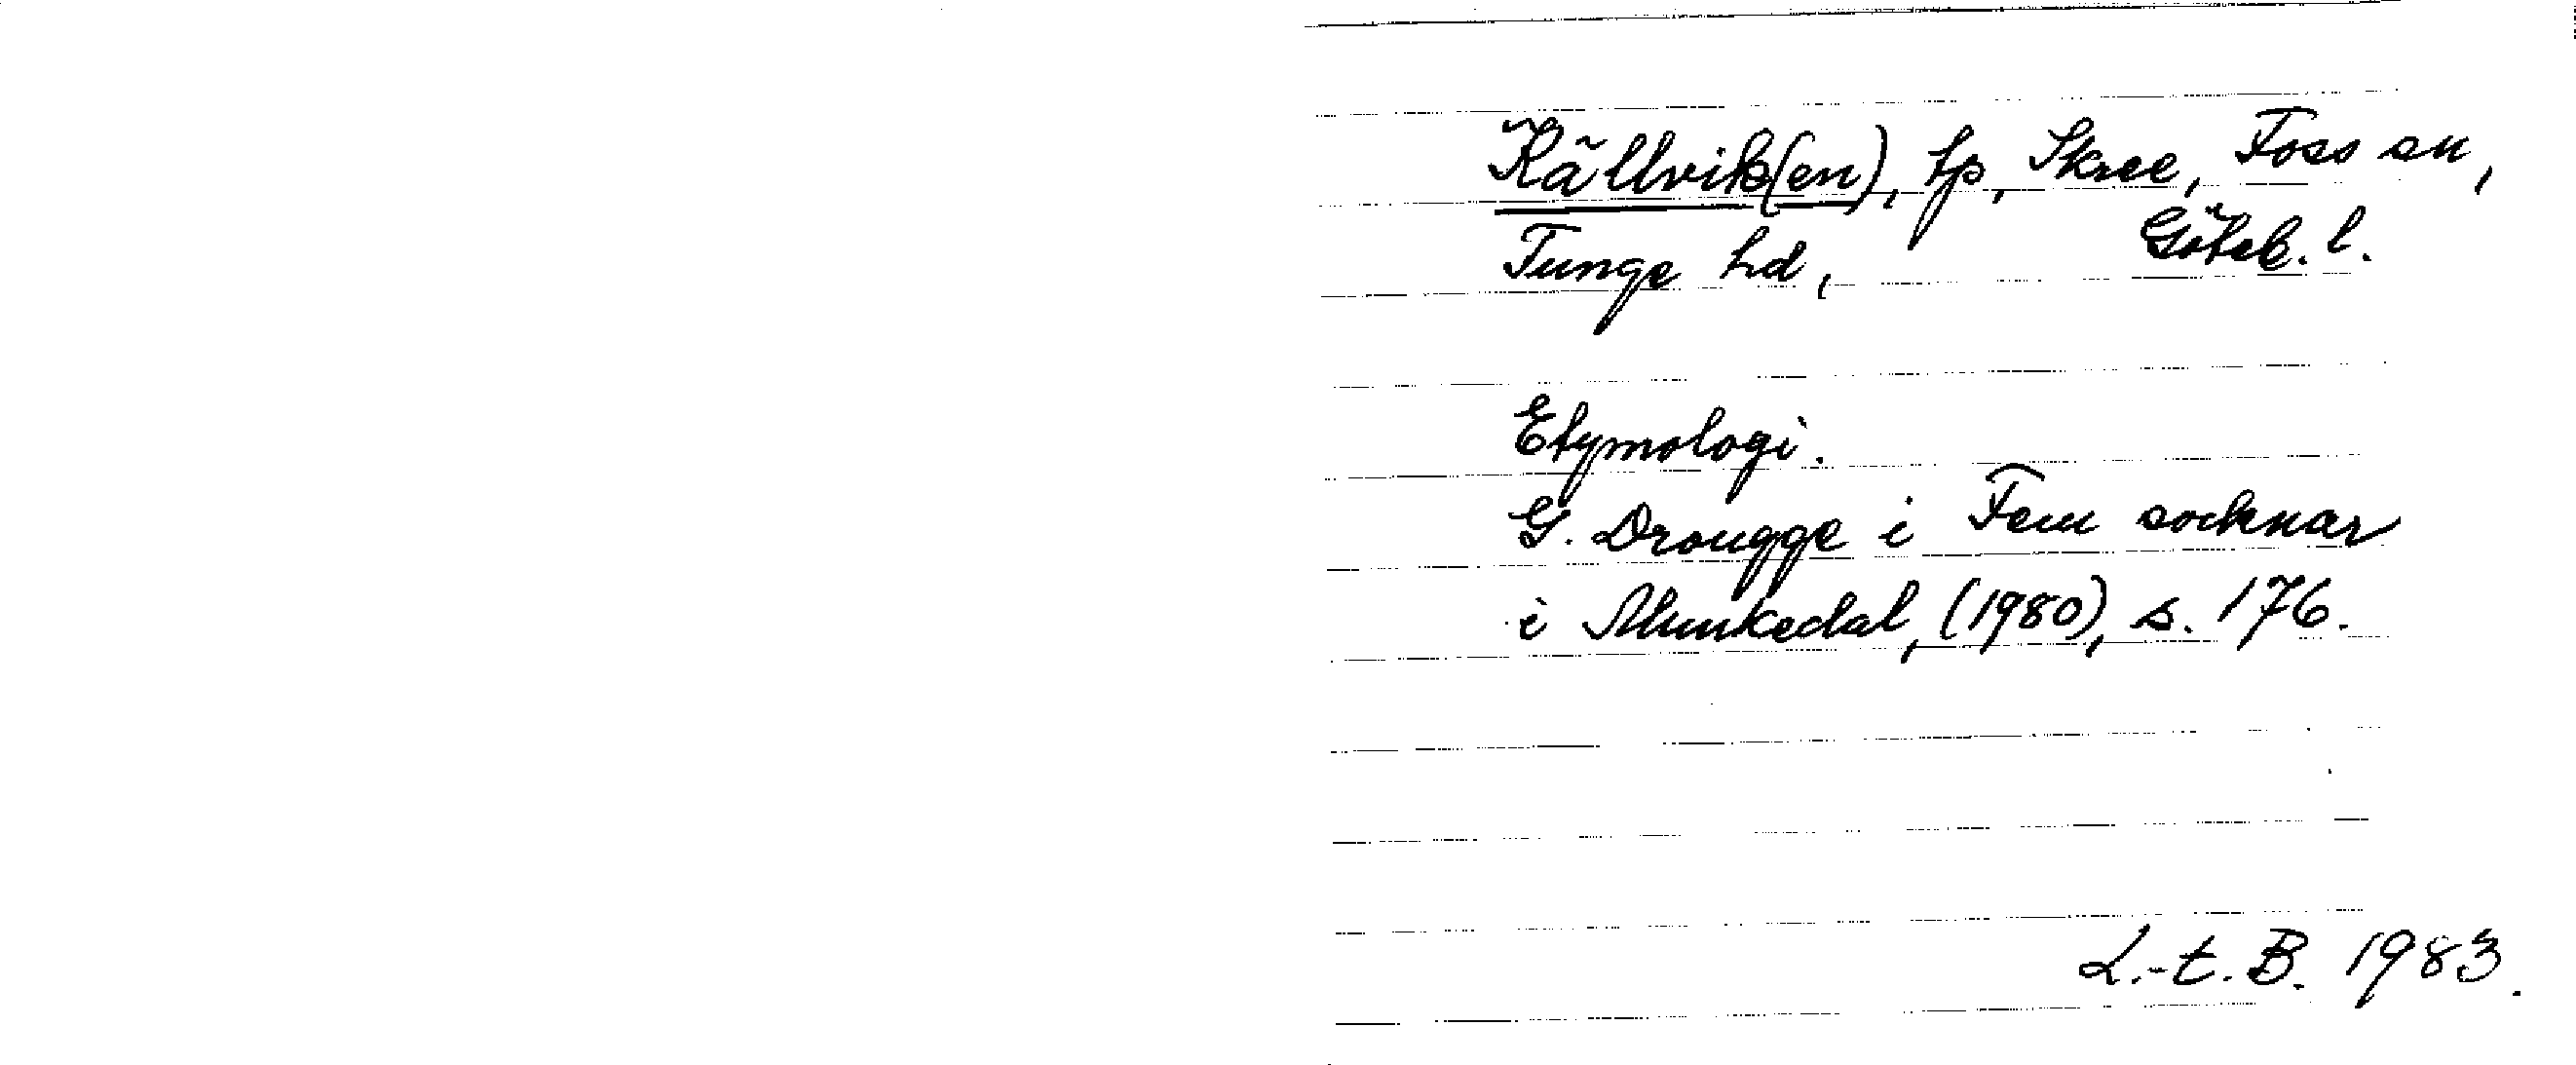 Källvik(en), tp, Skree, Foss sn,
Tunge hd, Göteb. l.
Etymologi.
G. Drougge i Fem socknar
i Munkedal, (1980), s. 176.
L.-t. B. 1983.